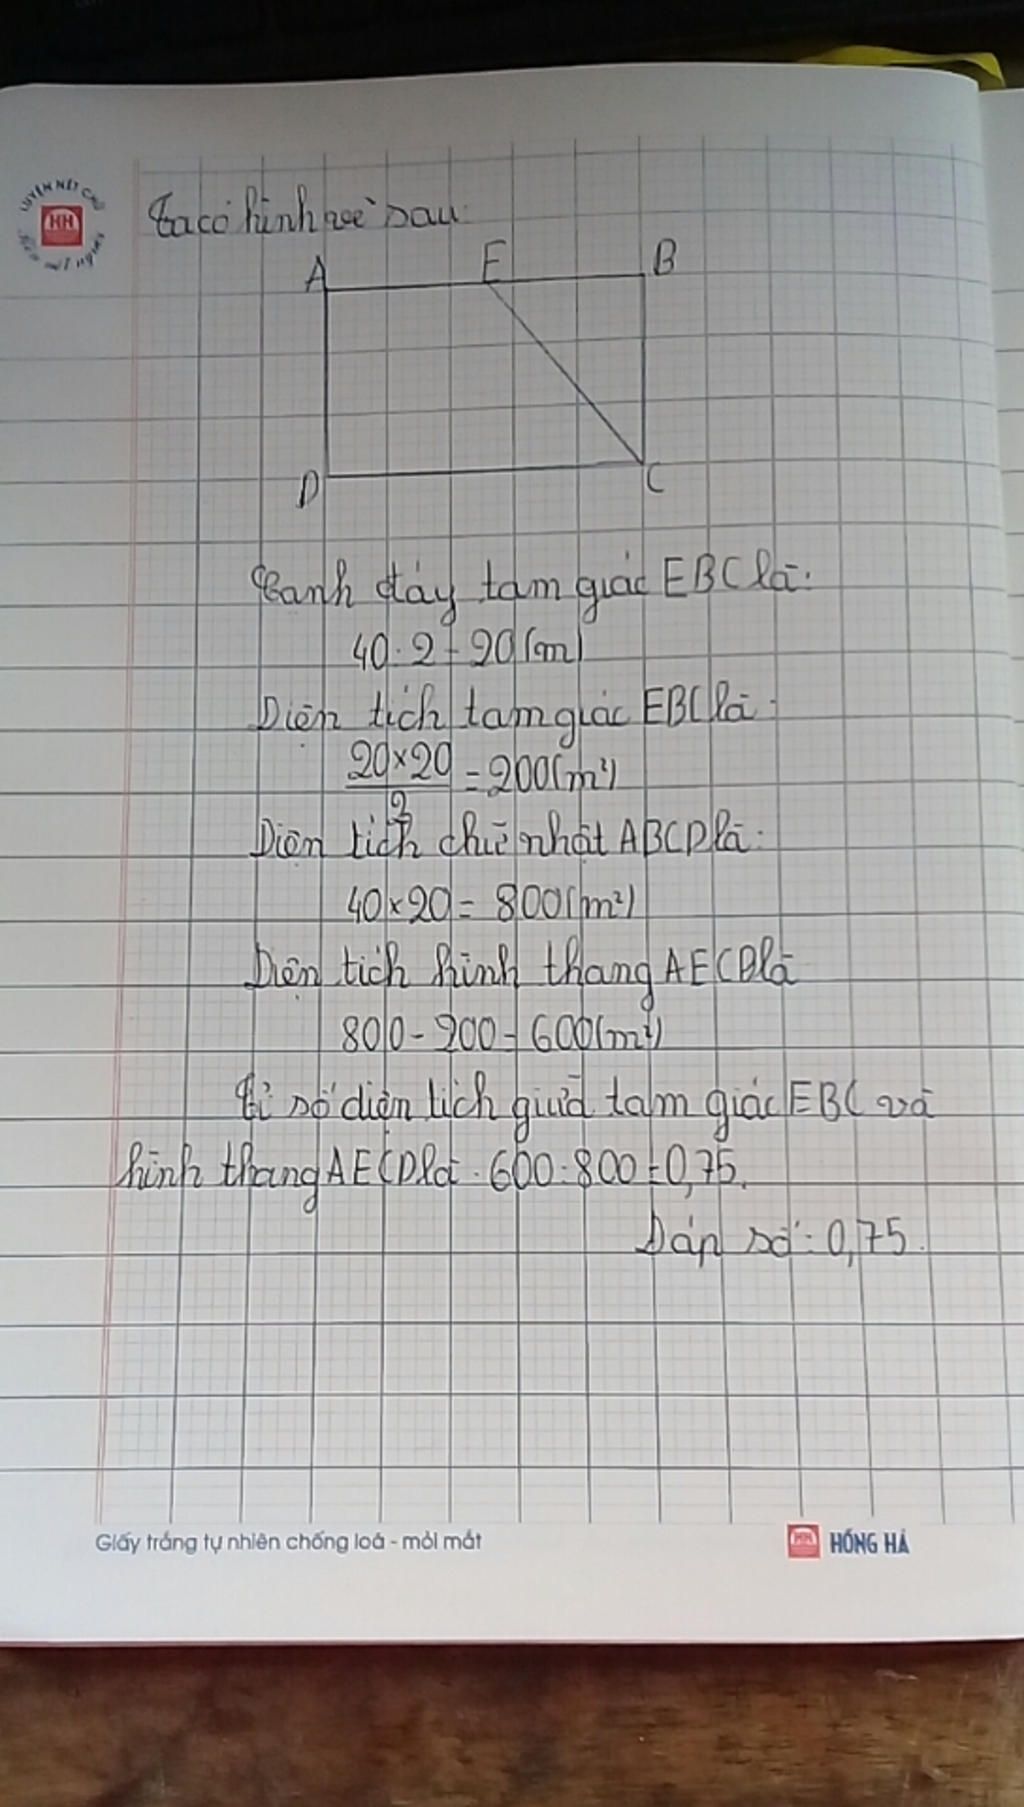 LUYỆN NÉT CHỮ
HH
Ta có hình vẽ sau:
A E B
D C
Cạnh đáy tam giác EBC là:
40:2=20(m)
Diện tích tam giác EBC là:
20×20
2
=200(m²)
Diện tích chữ nhật ABCD là:
40×20=800(m²)
Diện tích hình thang AECD là
800-200=600(m²)
Tỉ số diện tích giữa tam giác EBC và
hình thang AECD là: 600:800=0,75.
Đáp số: 0,75.
Giấy trắng tự nhiên chống loá - mỏi mắt
HH HỒNG HÀ